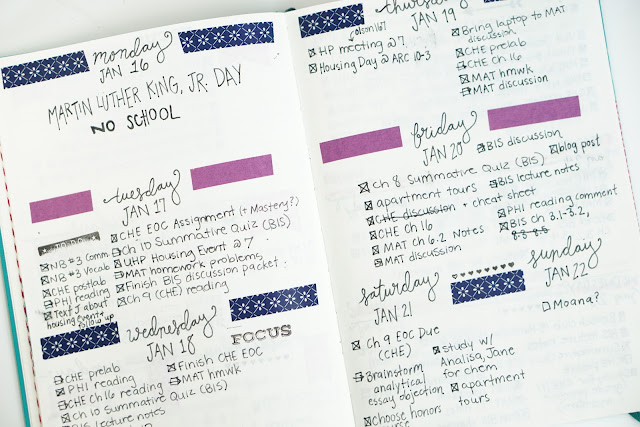 monday
JAN 16
MARTIN LUTHER KING, JR. DAY
NO SCHOOL
tuesday
JAN 17
TO DO
NB #3 Comm.
NB #3 Vocab
CHE postlab
PHI reading
Text J about
housing event
follow up
CHE EOC Assignment (+ Mastery?)
Ch 10 Summative Quiz (BIS)
UHP Housing Event @ 7
MAT homework problems
Finish BIS discussion packet
Ch 9 (CHE) reading
wednesday
JAN 18
FOCUS
CHE prelab
PHI reading
CHE Ch 16 reading
Ch 10 Summative Quiz (BIS)
BIS lecture notes
Finish CHE EOC
MAT hmwk
thursday
JAN 19
olson 167
HP meeting @ 7
Housing Day @ ARC 10-3
Bring laptop to MAT
discussion
CHE prelab
CHE Ch 16
MAT hmwk
MAT discussion
friday
JAN 20
BIS discussion
blog post
Ch 8 Summative Quiz (BIS)
apartment tours
CHE discussion + cheat sheet
CHE Ch 16
MAT Ch 6.2 Notes
MAT discussion
BIS lecture notes
PHI reading comment
BIS Ch 3.1-3.2,
saturday
JAN 21
Ch 9 EOC Due
(CHE)
Brainstorm
analytical
essay objection
choose honors
study w/
Analisa, Jane
for chem
apartment
tours
sunday
JAN 22
Moana?